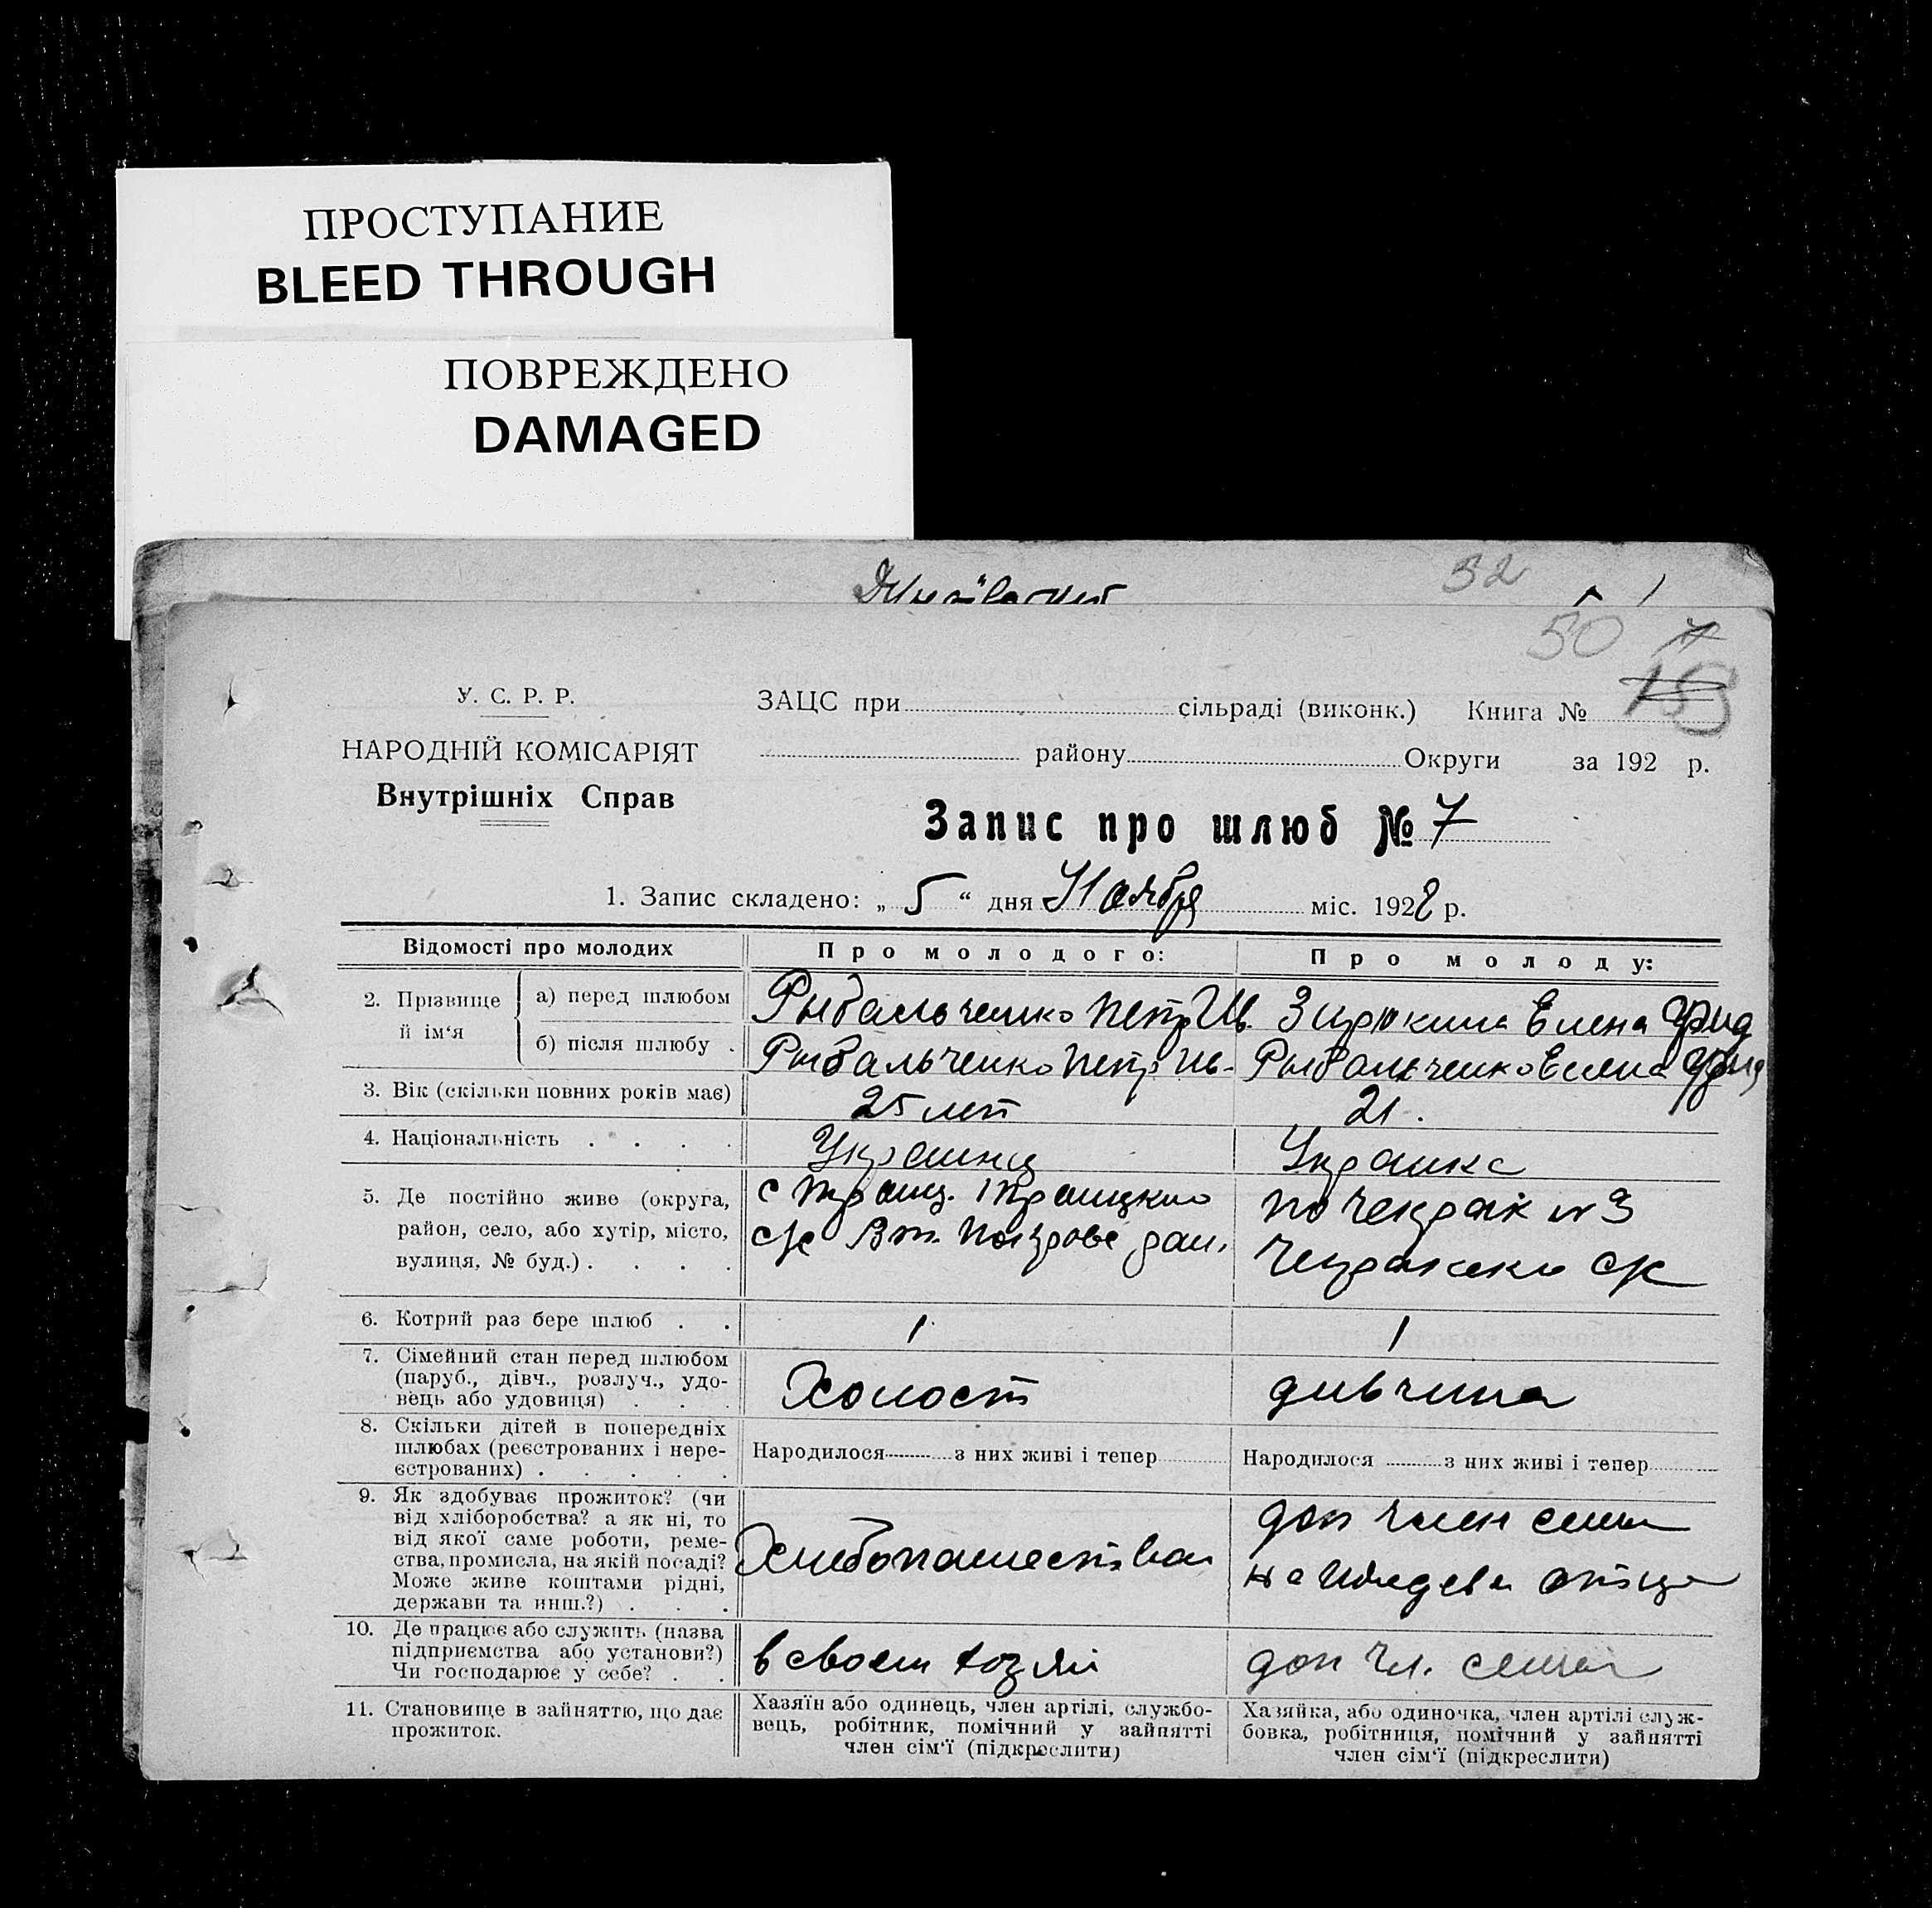 ПРОСТУПАНИЕ
BLEED THROUGH
ПОВРЕЖДЕНО
DAMAGED
32
50 7
153
У. С. Р. Р.
НАРОДНІЙ КОМІСАРІЯТ
Внутрішніх Справ
ЗАЦС при сільраді (виконк.) Книга №
району Округи за 192 р.
Запис про шлюб № 7
1. Запис складено: „ 5 “ дня Ноября міс. 1928 р.
Відомості про молодих
Про молодого:
Про молоду:
2. Прізвище й ім‘я
а) перед шлюбом
Рыбальченко Петр Ив.
Зирюкина Елена
б) після шлюбу .
Рыбальченко Петр Ив.
Рыбальченко Елена
3. Вік (скільки повних років має)
25 лет
21.
4. Національність . . . .
Украинц
Украинка
5. Де постійно живе (округа,
район, село, або хутір, місто,
вулиця, № буд.) . . . .
с Троиц. Троицкого
с/с
по Чекрак № 3
с/с
6. Котрий раз бере шлюб . .
1
1
7. Сімейний стан перед шлюбом
(паруб., дівч., розлуч., удо-
вець або удовиця) . . .
Холост
дивчина
8. Скільки дітей в попередніх
шлюбах (реєстрованих і нере-
єстрованих) . . . . .
Народилося з них живі і тепер
Народилося з них живі і тепер
9. Як здобуває прожиток? (чи
від хліборобства? а як ні, то
від якої саме роботи, реме-
ства, промисла, на якій посаді?
Може живе коштами рідні,
держави та инш.?) . . .
Хлебопашества
доп член семи
на отца
10. Де працює або служить (назва
підприємства або установи?)
Чи господарює у себе? . .
в своем хозяй
доп чл. семи
11. Становище в зайняттю, що дає
прожиток.
Хазяїн або одинець, член артілі, службо-
вець, робітник, помічний у зайнятті
член сім‘ї (підкреслити)
Хазяйка, або одиночка, член артілі служ-
бовка, робітниця, помічний у зайнятті
член сім‘ї (підкреслити)